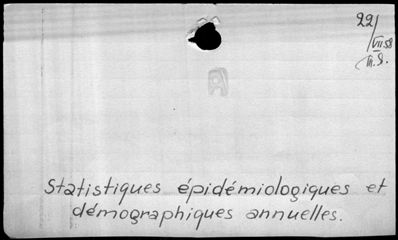 22/
VII 58
Statistiques épidémiologiques et
démographiques annuelles.